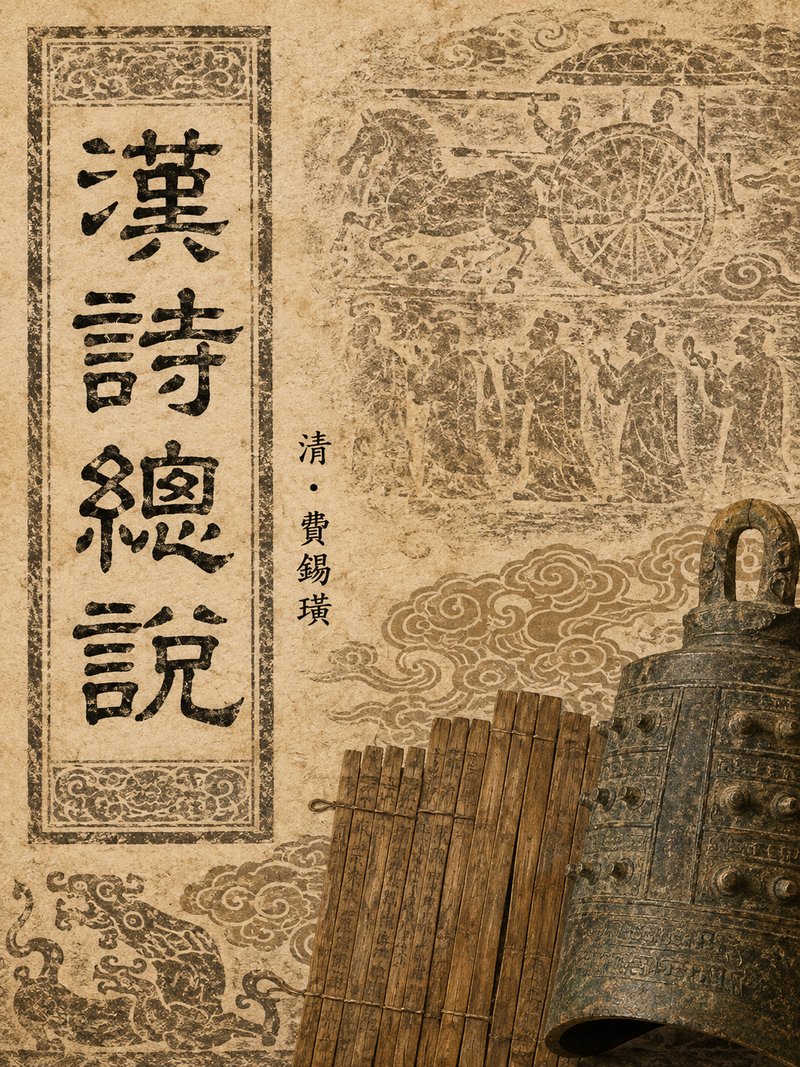 漢詩總說
清·費錫璜